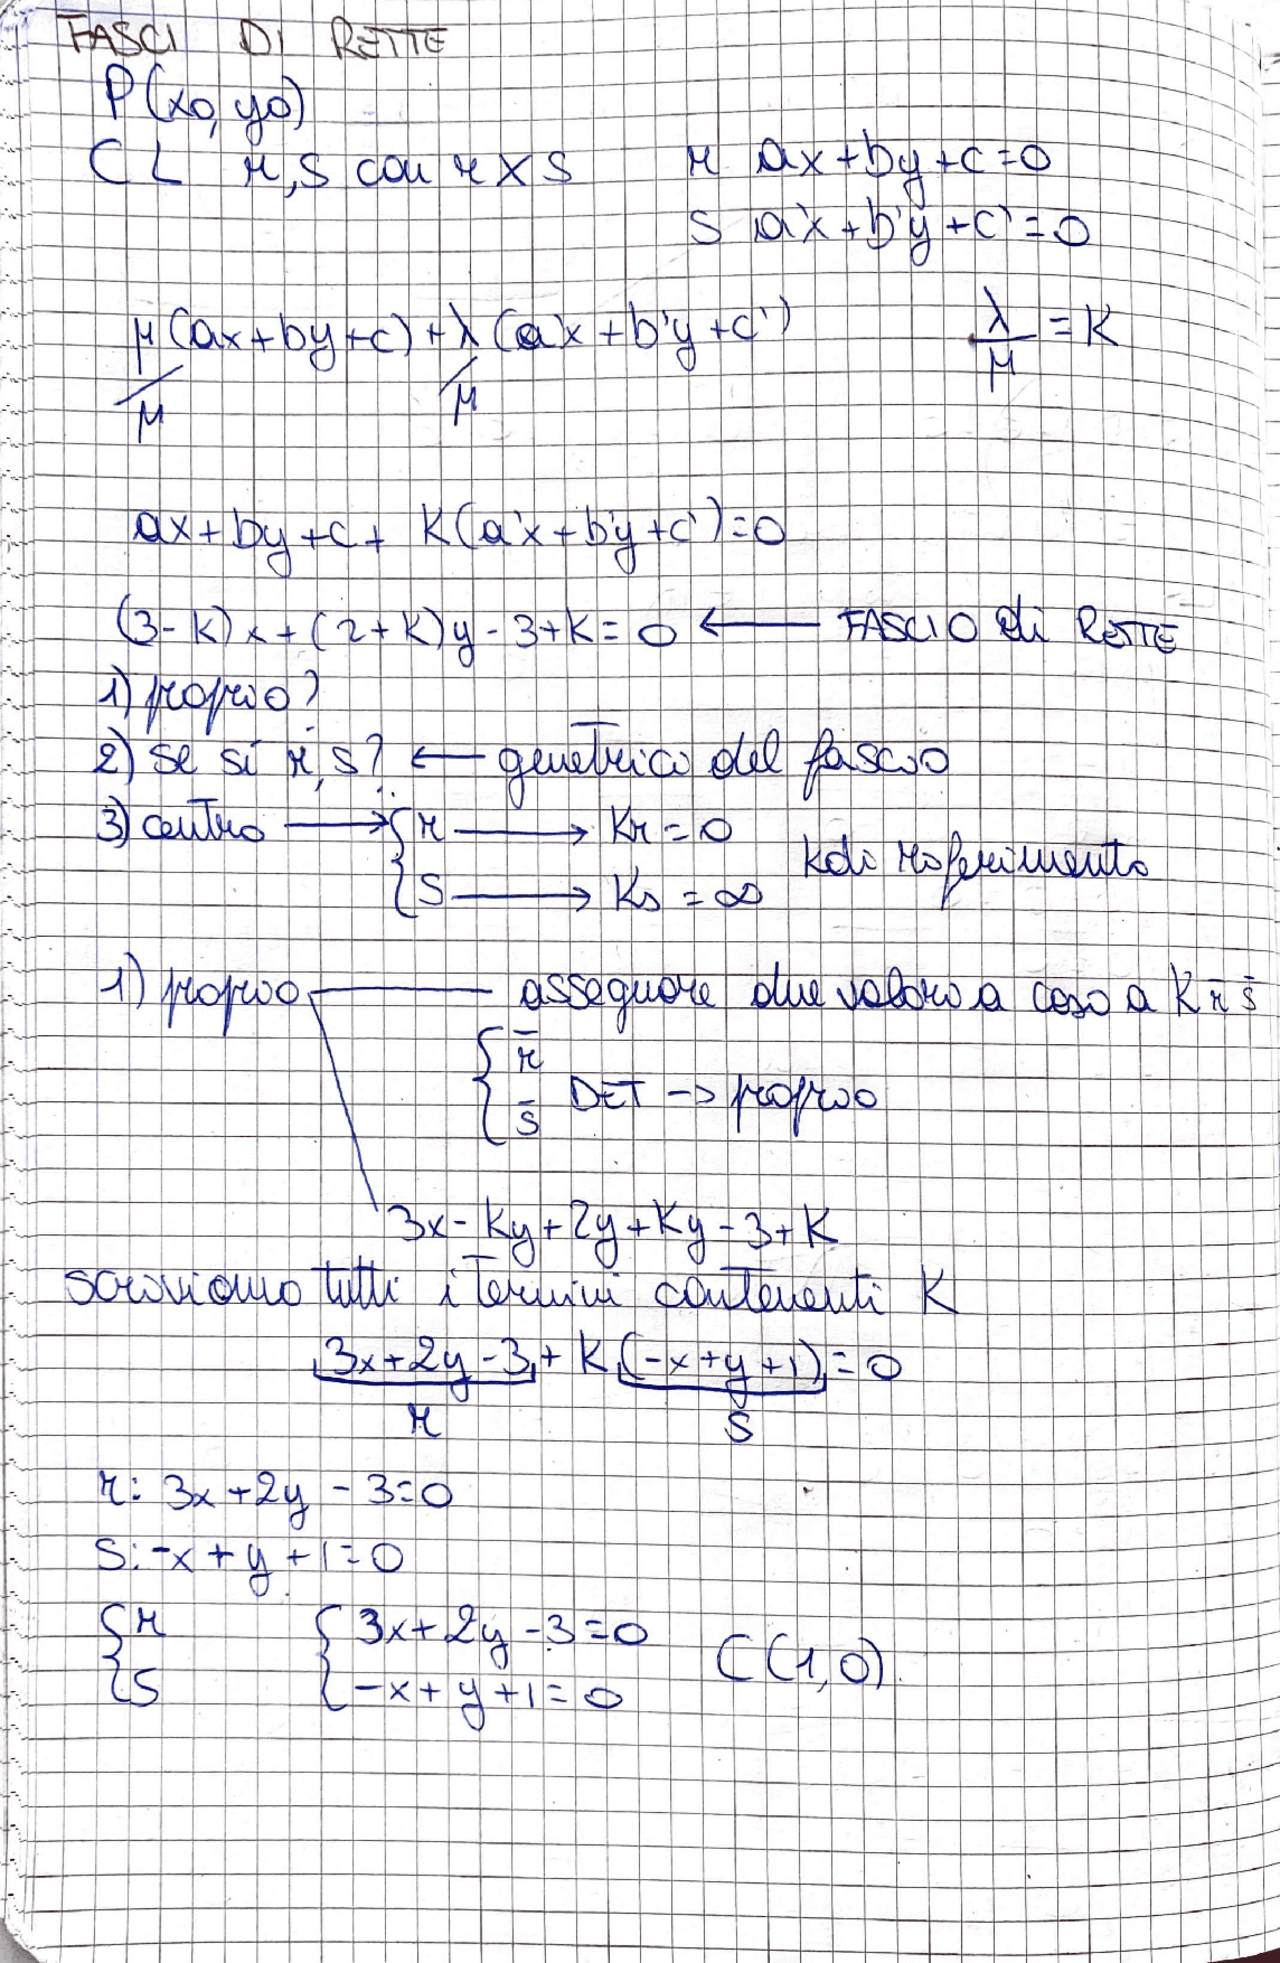 FASCI DI RETTE
P(x0, y0)
CL r,s con r x s r ax+by+c=0
s a'x+b'y+c'=0
μ(ax+by+c)+λ(a'x+b'y+c') λ/μ = K
/μ /μ
ax+by+c+ K(a'x+b'y+c')=0
(3-K)x+(2+K)y-3+K=0 ← FASCIO di RETTE
1) proprio?
2) se sì r,s? ← genetrici del fascio
3) centro → { r → Kr=0
s → Ks=∞ K di riferimento
1) proprio assegnare due valori a caso a K r̄ s̄
{ r̄
s̄ DET -> proprio
3x-Ky+2y+Ky-3+K
scriviamo tutti i termini contenenti K
3x+2y-3+K(-x+y+1)=0
r s
r: 3x+2y-3=0
s: -x+y+1=0
{ r { 3x+2y-3=0 C(1,0)
s -x+y+1=0